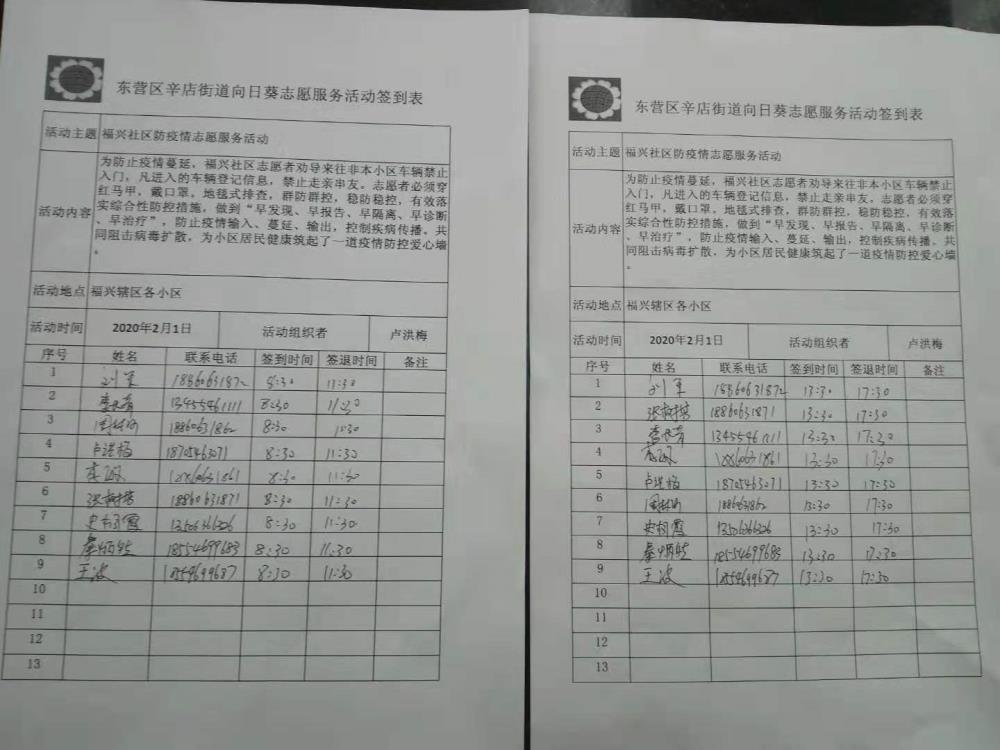 东营区辛店街道向日葵志愿服务活动签到表
活动主题 福兴社区防疫情志愿服务活动
活动内容
为防止疫情蔓延，福兴社区志愿者劝导来往非本小区车辆禁止
入门，凡进入的车辆登记信息，禁止走亲串友。志愿者必须穿
红马甲，戴口罩。地毯式排查，群防群控，稳防稳控，有效落
实综合性防控措施，做到“早发现、早报告、早隔离、早诊断
、早治疗”，防止疫情输入、蔓延、输出，控制疾病传播。共
同阻击病毒扩散，为小区居民健康筑起了一道疫情防控爱心墙
。
活动地点 福兴辖区各小区
活动时间 2020年2月1日 活动组织者 卢洪梅
序号 姓名 联系电话 签到时间 签退时间 备注
1 18860631872 8:30 11:30
2 13455461111 8:30 11:30
3 18860631862 8:30
4 卢洪梅 18705463071 8:30 11:30
5 18860631861 8:30 11:30
6 18860631871 8:30 11:30
7 8:30 11:30
8 18554699683 8:30 11:30
9 王波 8:30 11:30
10
11
12
13
东营区辛店街道向日葵志愿服务活动签到表
活动主题 福兴社区防疫情志愿服务活动
活动内容
为防止疫情蔓延，福兴社区志愿者劝导来往非本小区车辆禁止
入门，凡进入的车辆登记信息，禁止走亲串友。志愿者必须穿
红马甲，戴口罩。地毯式排查，群防群控，稳防稳控，有效落
实综合性防控措施，做到“早发现、早报告、早隔离、早诊断
、早治疗”，防止疫情输入、蔓延、输出，控制疾病传播。共
同阻击病毒扩散，为小区居民健康筑起了一道疫情防控爱心墙
。
活动地点 福兴辖区各小区
活动时间 2020年2月1日 活动组织者 卢洪梅
序号 姓名 联系电话 签到时间 签退时间 备注
1 18860631872 13:30 17:30
2 18860631871 13:30 17:30
3 13455461111 13:30 17:30
4 18860631861 13:30 17:30
5 卢洪梅 18705463071 13:30 17:30
6 13:30 17:30
7 13:30 17:30
8 18554699683 13:30 17:30
9 王波 13:30 17:30
10
11
12
13